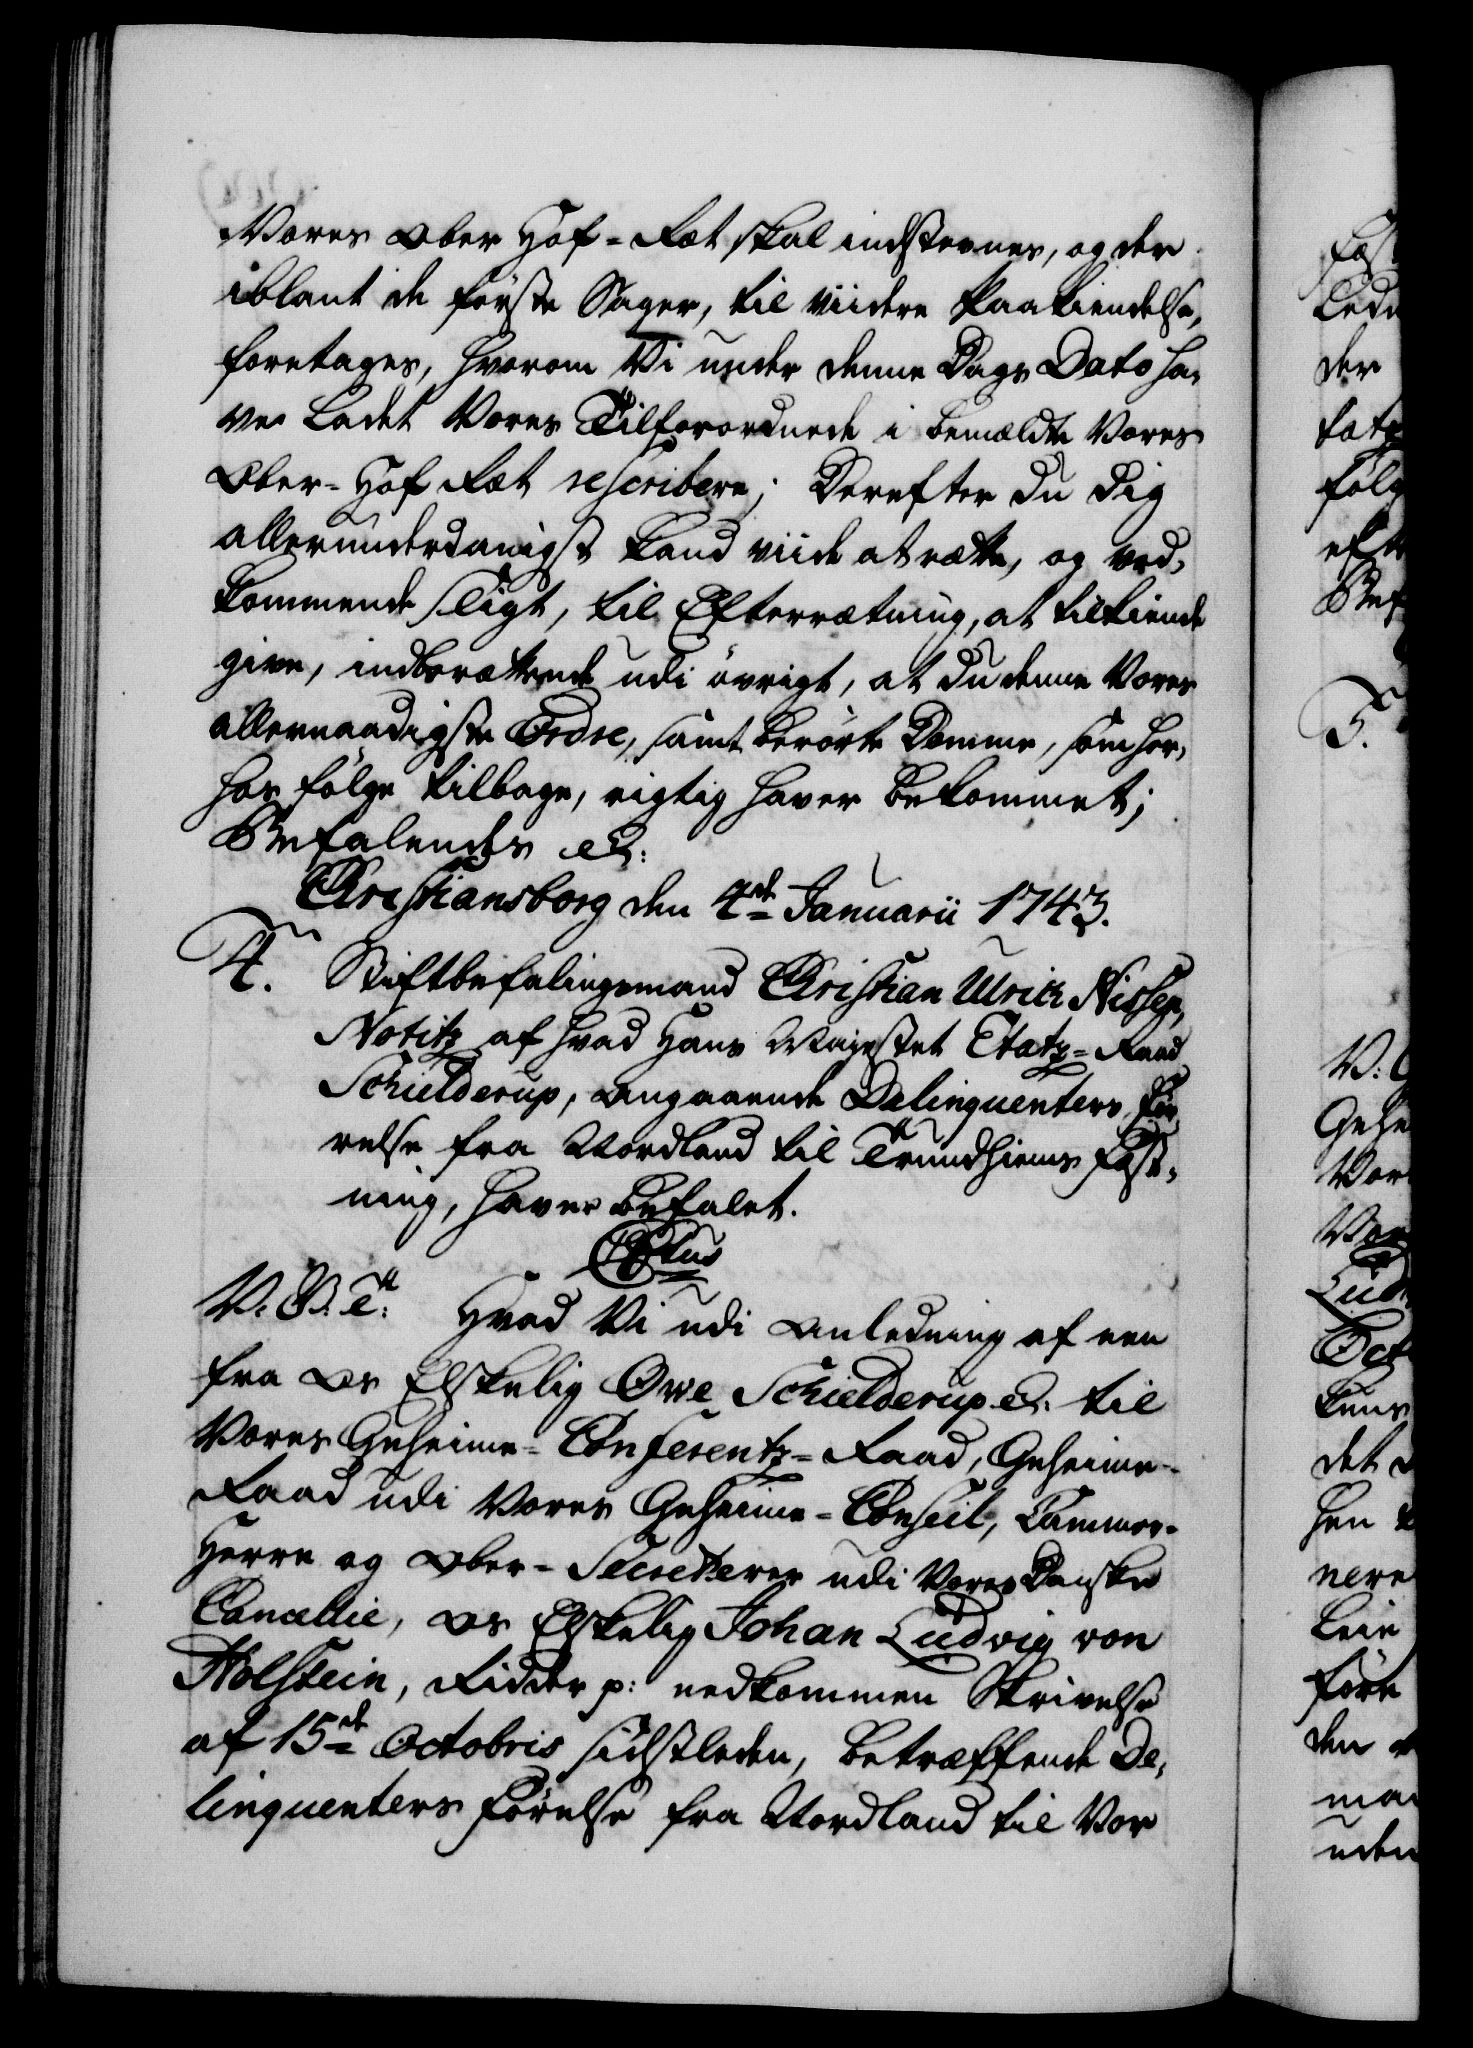 Vores Ober Hof-Ræt skal indstevnes, og der
iblant de første Sager, til viidere Paakiendelse,
foretages, hvorom Vi under denne Dags Dato ha-
ve ladet Vores Tilforordnede i bemældte Vores
Ober-Hof Ræt rescribere; Derefter du dig
allerunderdanigst kand viide at rætte, og ved-
kommende sligt, til Efterrætning, at tilkiende
give, indberættende udi øvrigt, at du denne Vores
allernaadigste Ordre, samt berørte Domme, som her-
hos følge tilbage, rigtig haver bekommet;
Befalendes etc:
Christiansborg den 4de Januarii 1743.
4. Stiftbefalingsmand Christian Ulrich Nissen,
Notitz af hvad Hans Majestet Etatz-Raad
Schielderup, angaaende Delinquenters Fø-
relse fra Nordland til Trundhiems Fæst-
ning, haver befalet.
CStus
V. G. T: Hvad Vi udi Anledning af een
fra Os Elskelig Ove Schielderup etc. til
Vores Geheime-Conferentz-Raad, Geheime-
Raad udi Vores Geheime-Conseil, Cammer-
Herre og Ober-Secreterer udi Vores Danske
Cancellie, Os Elskelig Johan Ludvig von
Holstein, Ridder p: nedkommen Skrivelse
af 15de Octobris sidstleden, betræffende De-
linquenters Førelse fra Nordland til Vor